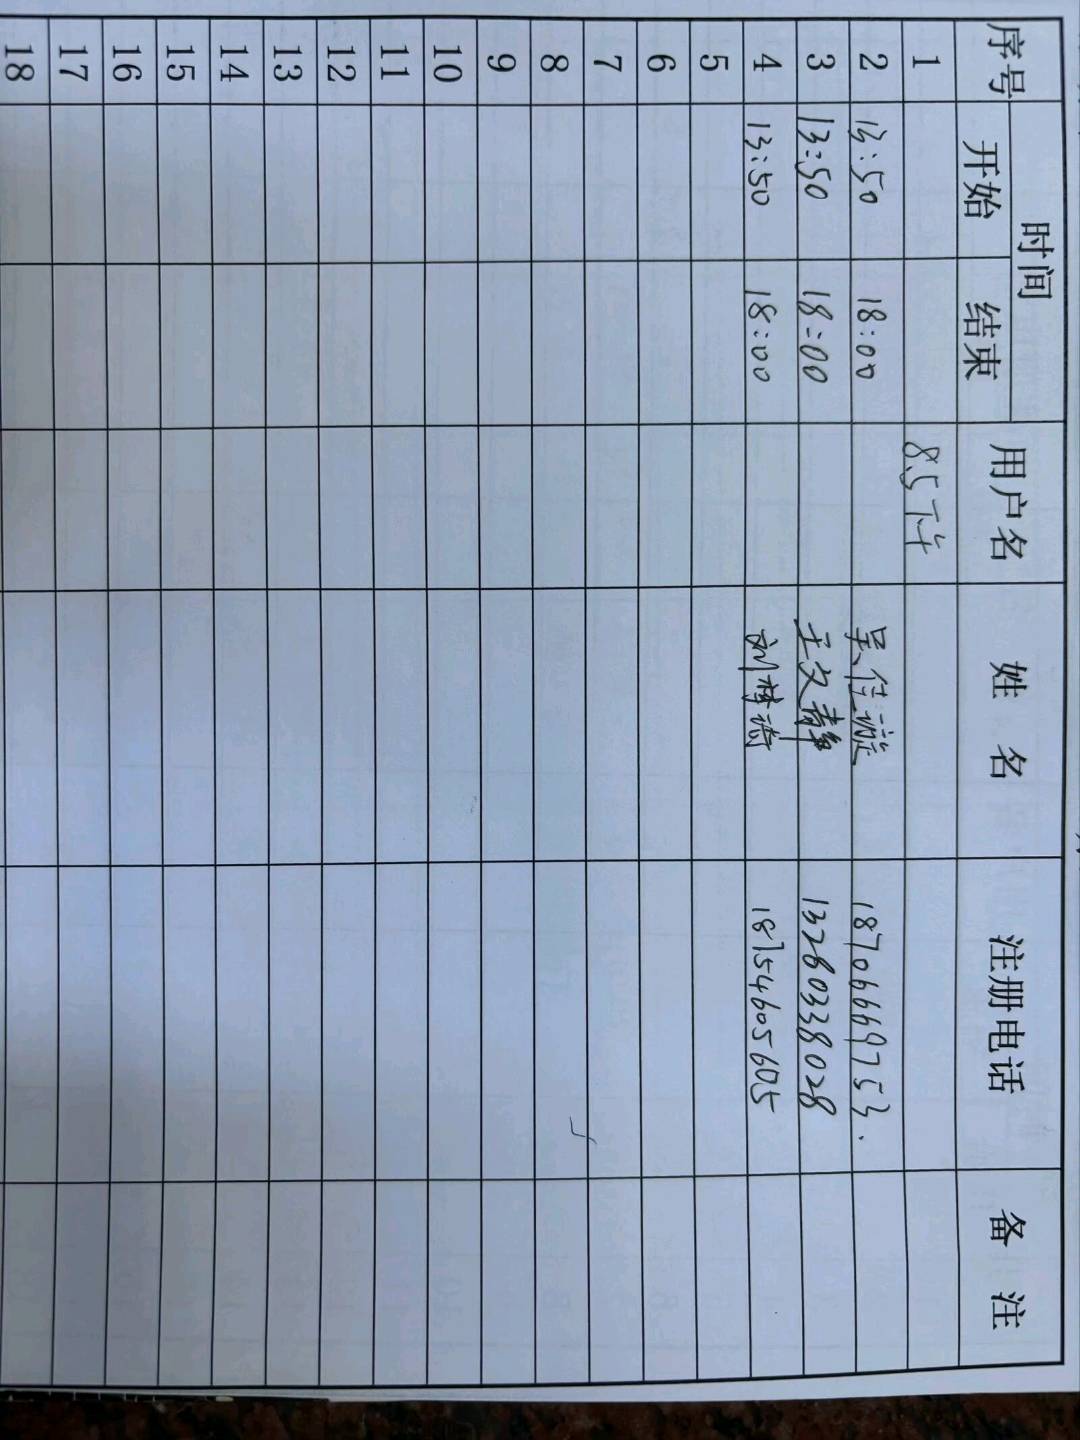 序号 时间 用户名 姓名 注册电话 备注
开始 结束
1 8.5下午
2 13:50 18:00 吴佳漩 18706669753.
3 13:50 18:00 王文静 13280338028
4 13:50 18:00 刘梦琦 18754605605
5
6
7
8
9
10
11
12
13
14
15
16
17
18